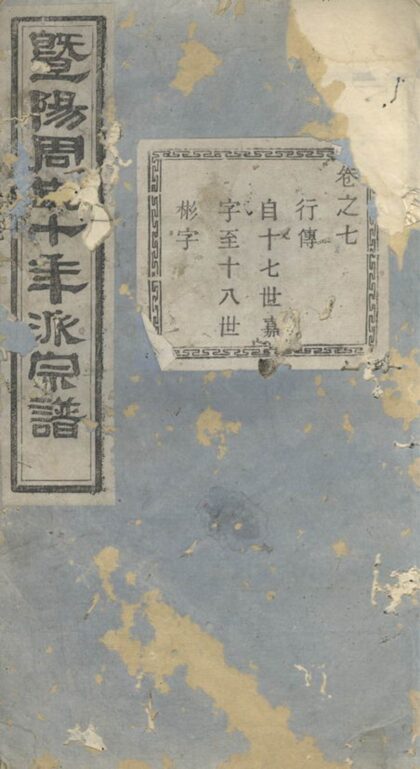 卷之七
行傳
自十七世嘉
字至十八世
彬字
暨陽周氏十年派宗譜